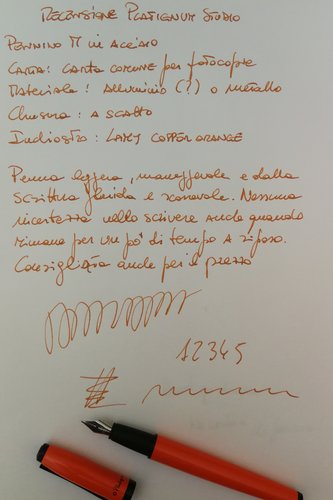 RECENSIONE PLATIGNUM STUDIO
PENNINO M in ACCIAIO
CARTA: CARTA COMUNE per fotocopie
Materiale: Alluminio (?) o metallo
Chiusura: A SCATTO
Inchiostro: LAMY COPPER ORANGE
Penna leggera, maneggevole e dalla
scrittura fluida e scorrevole. Nessuna
incertezza nello scrivere anche quando
rimane per un pò di tempo A riposo.
Consigliata anche per il prezzo
12345